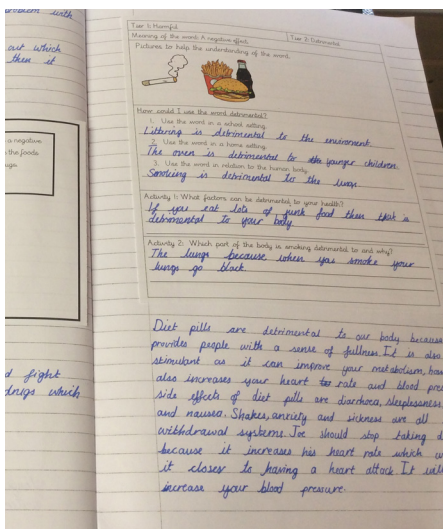 problem with
out which
then it
a negative
the foods
Tier 1: Harmful
Tier 2: Detrimental
Meaning of the word: A negative effect.
Pictures to help the understanding of the word.
How could I use the word detrimental?
1. Use the word in a school setting.
Littering is detrimental to the enviroment.
2. Use the word in a home setting.
The oven is detrimental to younger children.
3. Use the word in relation to the human body.
Smoking is detrimental to the lungs
Activity 1: What factors can be detrimental to your health?
If you eat lots of junk food then that is
detrimental to your body.
Activity 2: Which part of the body is smoking detrimental to and why?
The lungs because when you smoke your
lungs go black.
d fight
drugs which
Diet pills are detrimental to our body because
provides people with a sense of fullness. It is also
stimulant as it can improve your metabolism, how
also increases your heart rate and blood pre
side effects of diet pills are diarrhoea, sleeplessness
and nausea. Shakes, anxiety and sickness are all
withdrawal systems. Joe should stop taking d
because it increases his heart rate which w
it closer to having a heart attack. It will
increase your blood pressure.